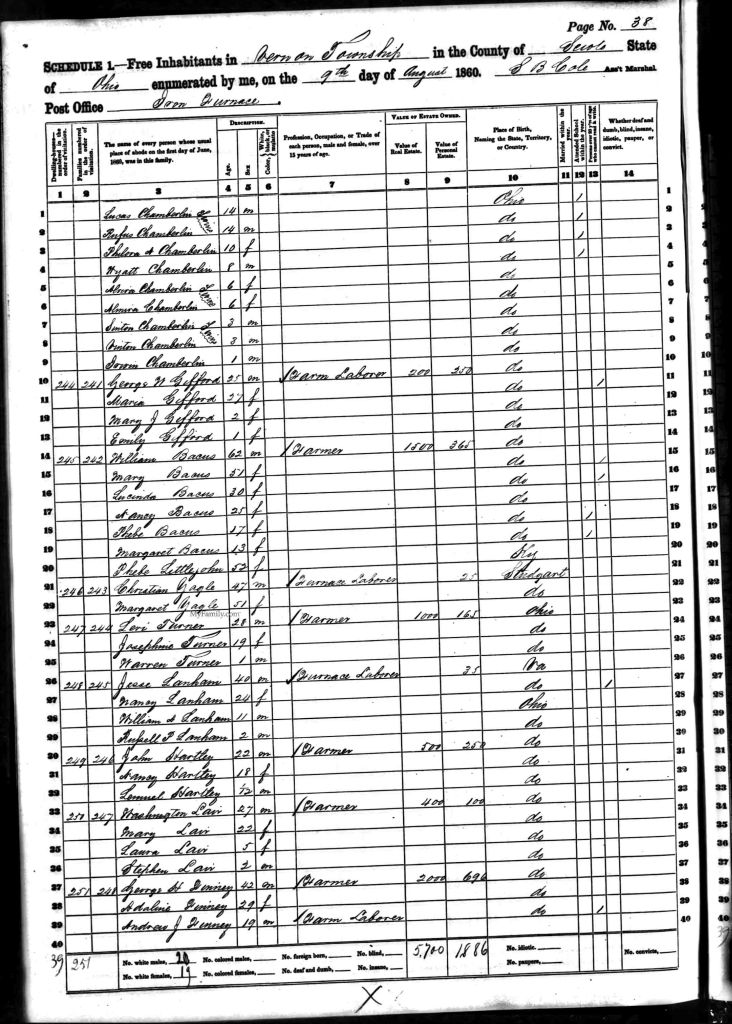 Page No. 38
SCHEDULE 1.—Free Inhabitants in Vernon Township in the County of Scioto State
of Ohio enumerated by me, on the 9th day of August 1860. S B Cole Ass't Marshal.
Post Office Iron Furnace.
Dwelling-houses—numbered in the order of visitation. Families numbered in the order of visitation. The name of every person whose usual place of abode on the first day of June, 1860, was in this family. DESCRIPTION. Age. Sex. Color, White, black, or mulatto. Profession, Occupation, or Trade of each person, male and female, over 15 years of age. VALUE OF ESTATE OWNED. Value of Real Estate. Value of Personal Estate. Place of Birth, Naming the State, Territory, or Country. Married within the year. Attended School within the year. Whether deaf and dumb, blind, insane, idiotic, pauper, or convict.
1 2 3 4 5 6 7 8 9 10 11 12 13 14
1 Lucas Chamberlin Twins 14 m Ohio / 1
2 Rufus Chamberlin 14 m do / 2
3 Philora A Chamberlin 10 f do / 3
4 Wyatt Chamberlin 8 m do / 4
5 Alvira Chamberlin Twins 6 f do 5
6 Almira Chamberlin 6 f do 6
7 Sinton Chamberlin Twins 3 m do 7
8 Vinton Chamberlin 3 m do 8
9 Chamberlin 1 m do 9
10 244 241 George W Gifford 25 m / Farm Laborer 200 250 do / 10
11 Maria Gifford 27 f do 11
12 Mary J Gifford 2 f do 12
13 Emily Gifford 1 f do 13
14 245 242 William Bacus 62 m / Farmer 1500 365 do 14
15 Mary Bacus 51 f do / 15
16 Lucinda Bacus 30 f do / 16
17 Nancy Bacus 25 f do 17
18 Phebe Bacus 17 f do / 18
19 Margaret Bacus 13 f do / 19
20 Phebe Littlejohn 52 f Ky 20
21 246 243 Christian Yagle 47 m / Furnace Laborer 25 Studgart 21
22 Margaret Yagle 51 f do 22
MyFamily.com
23 247 244 Levi Turner 28 m / Farmer 1000 165 Ohio 23
24 Josephine Turner 19 f do 24
25 Warren Turner 1 m do 25
26 248 245 Jesse Lanham 40 m / Furnace Laborer 35 Va 26
27 Nancy Lanham 24 f do / 27
28 William A Lanham 11 m Ohio 28
29 Russell P Lanham 2 m do 29
30 249 246 John Hartley 22 m / Farmer 500 250 do 30
31 Nancy Hartley 18 f do 31
32 Lemuel Hartley m do 32
33 250 247 Washington Lair 27 m / Farmer 400 100 do 33
34 Mary Lair 22 f do 34
35 Laura Lair 5 f do 35
36 Stephen Lair 2 m do 36
37 251 248 George H Finney 42 m / Farmer 2000 696 do 37
38 Adaline Finney 29 f do 38
39 Andrew J Finney 19 m / Farm Laborer do / 39
40 40
39 251 No. white males, 20 No. colored males, No. foreign born, No. blind, 5,700 1886 No. idiotic, No. convicts,
No. white females, 19 No. colored females, No. deaf and dumb, No. insane, No. paupers,
X